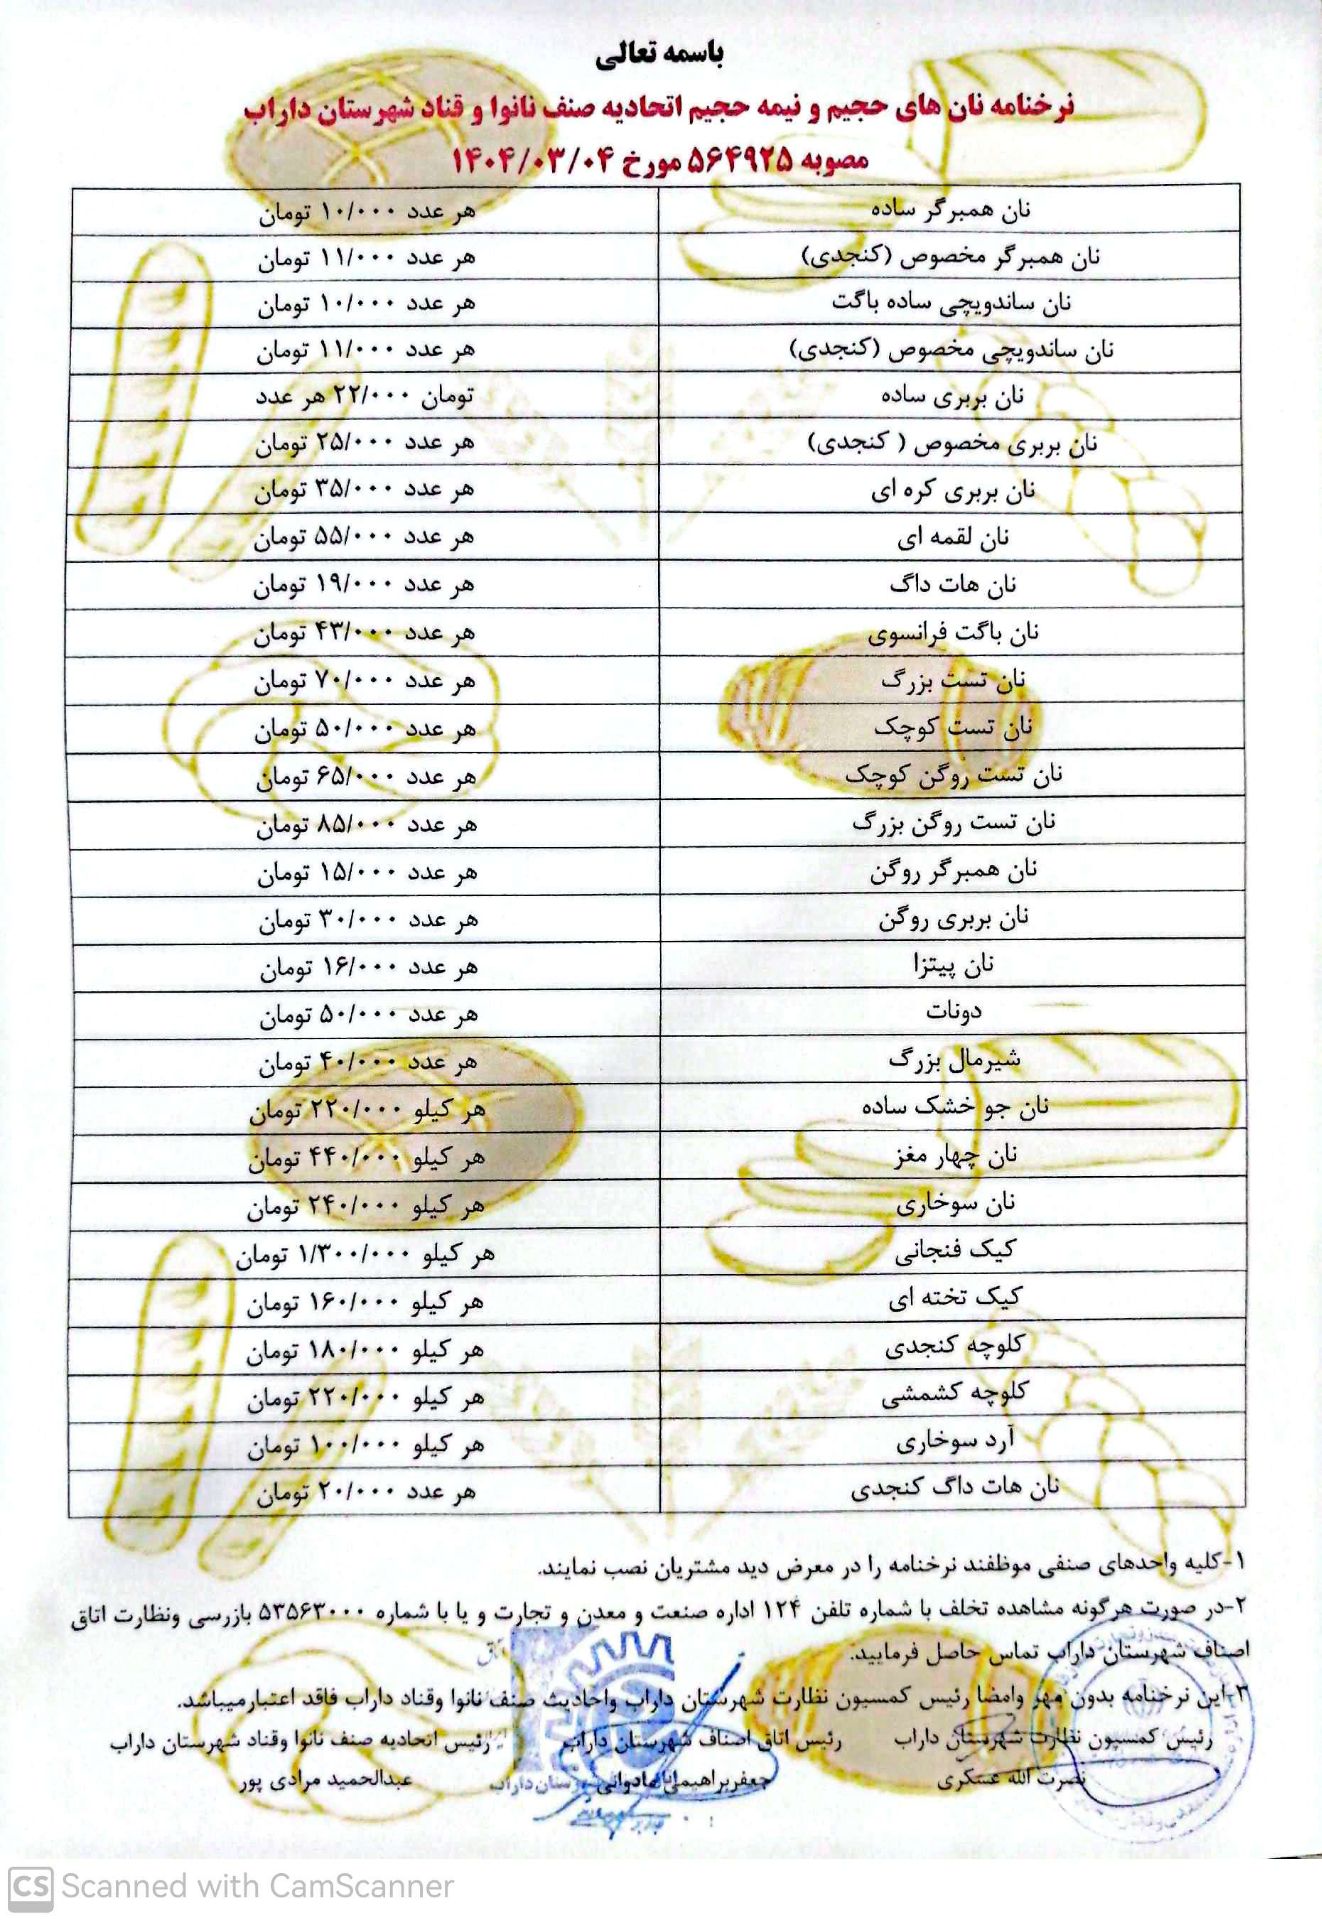 باسمه تعالی
نرخنامه نان های حجیم و نیمه حجیم اتحادیه صنف نانوا و قناد شهرستان داراب
مصوبه ۵۶۴۹۲۵ مورخ ۱۴۰۴/۰۳/۰۴
نان همبرگر ساده هر عدد ۱۰/۰۰۰ تومان
نان همبرگر مخصوص (کنجدی) هر عدد ۱۱/۰۰۰ تومان
نان ساندویچی ساده باگت هر عدد ۱۰/۰۰۰ تومان
نان ساندویچی مخصوص (کنجدی) هر عدد ۱۱/۰۰۰ تومان
نان بربری ساده تومان ۲۲/۰۰۰ هر عدد
نان بربری مخصوص ( کنجدی) هر عدد ۲۵/۰۰۰ تومان
نان بربری کره ای هر عدد ۳۵/۰۰۰ تومان
نان لقمه ای هر عدد ۵۵/۰۰۰ تومان
نان هات داگ هر عدد ۱۹/۰۰۰ تومان
نان باگت فرانسوی هر عدد ۴۳/۰۰۰ تومان
نان تست بزرگ هر عدد ۷۰/۰۰۰ تومان
نان تست کوچک هر عدد ۵۰/۰۰۰ تومان
نان تست روگن کوچک هر عدد ۶۵/۰۰۰ تومان
نان تست روگن بزرگ هر عدد ۸۵/۰۰۰ تومان
نان همبرگر روگن هر عدد ۱۵/۰۰۰ تومان
نان بربری روگن هر عدد ۳۰/۰۰۰ تومان
نان پیتزا هر عدد ۱۶/۰۰۰ تومان
دونات هر عدد ۵۰/۰۰۰ تومان
شیرمال بزرگ هر عدد ۴۰/۰۰۰ تومان
نان جو خشک ساده هر کیلو ۲۲۰/۰۰۰ تومان
نان چهار مغز هر کیلو ۴۴۰/۰۰۰ تومان
نان سوخاری هر کیلو ۲۴۰/۰۰۰ تومان
کیک فنجانی هر کیلو ۱/۳۰۰/۰۰۰ تومان
کیک تخته ای هر کیلو ۱۶۰/۰۰۰ تومان
کلوچه کنجدی هر کیلو ۱۸۰/۰۰۰ تومان
کلوچه کشمشی هر کیلو ۲۲۰/۰۰۰ تومان
آرد سوخاری هر کیلو ۱۰۰/۰۰۰ تومان
نان هات داگ کنجدی هر عدد ۲۰/۰۰۰ تومان
۱-کلیه واحدهای صنفی موظفند نرخنامه را در معرض دید مشتریان نصب نمایند.
۲-در صورت هرگونه مشاهده تخلف با شماره تلفن ۱۲۴ اداره صنعت و معدن و تجارت و یا با شماره ۵۳۵۶۳۰۰۰ بازرسی ونظارت اتاق
اصناف شهرستان داراب تماس حاصل فرمایید.
۳-این نرخنامه بدون مهر وامضا رئیس کمسیون نظارت شهرستان داراب واحادیث صنف نانوا وقناد داراب فاقد اعتبارمیباشد.
رئیس کمسیون نظارت شهرستان داراب رئیس اتاق اصناف شهرستان داراب رئیس اتحادیه صنف نانوا وقناد شهرستان داراب
نصرت الله عسکری عبدالحمید مرادی پور
CS Scanned with CamScanner